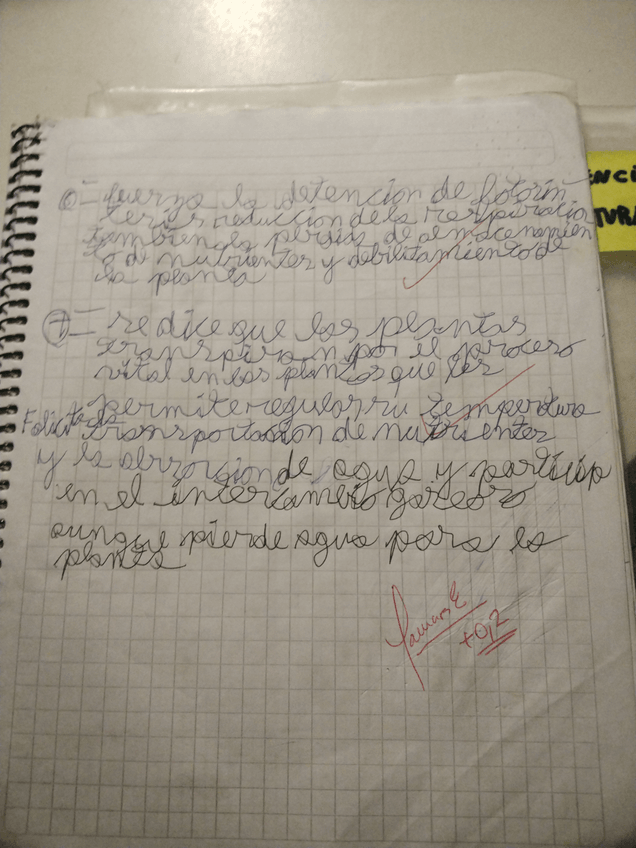 6= fuerza la detencion de fotosin
tesis reduccion de la respiracion
tambien la persia de almacenamien
to de nutrientes y debilitamiento de
la planta
7= se dice que las plantas
transpiran por el proceso
vital en las plantas que les
permite regular su temperatura
Falicita la transportacion de nutrientes
y la absorcion de agua y particip
en el intercambio gaseoso
aunque pierde agua para la
planta
+0,2
ENCI
TURA